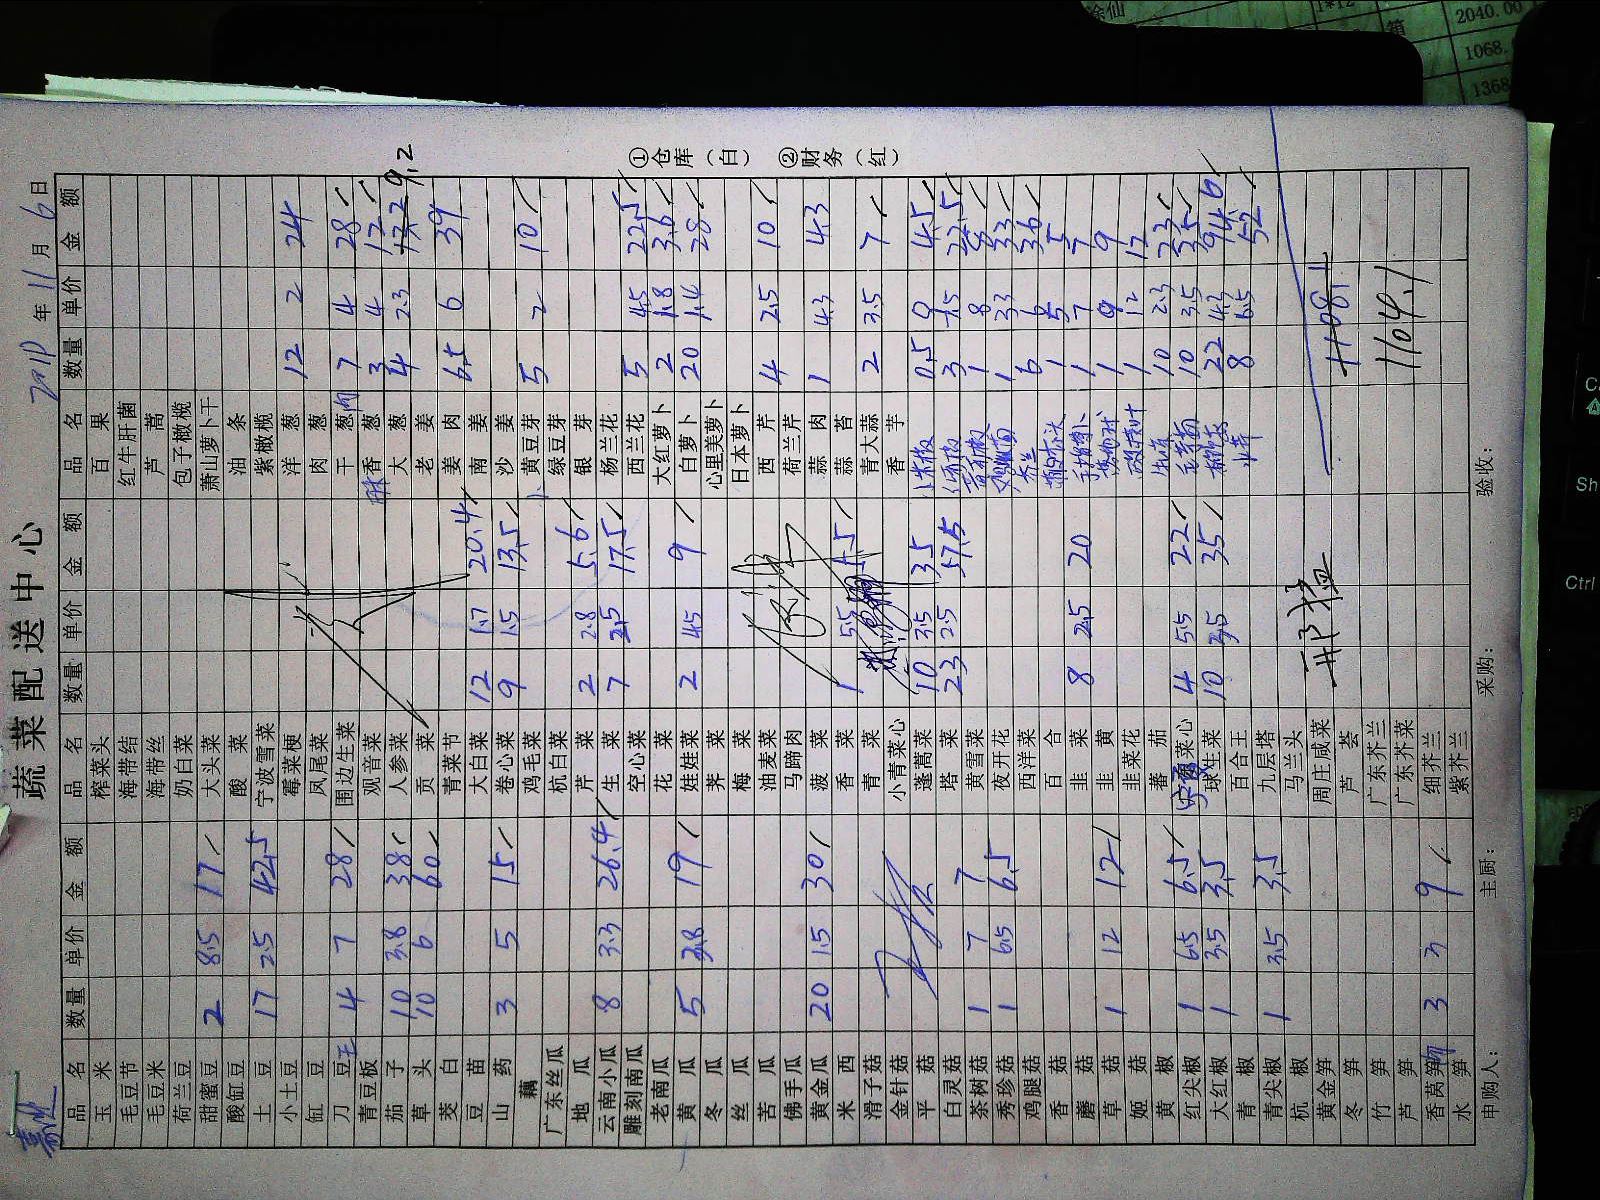 蔬菜配送中心
年 11 月 6 日
品名 数量 单价 金额 品名 数量 单价 金额 品名 数量 单价 金额
玉米 榨菜头 百果
毛豆节 海带结 红牛肝菌
毛豆米 海带丝 芦蒿
荷兰豆 奶白菜 包子橄榄
甜蜜豆 2 8.5 17 大头菜 萧山萝卜干
酸缸豆 酸菜 油条
土豆 17 2.5 42.5 宁波雪菜 紫橄榄
小土豆 霉菜梗 洋葱 12 2 24
缸豆 凤尾菜 肉葱
刀豆 4 7 28 围边生菜 干葱 7 4 28
青豆板 观音菜 香葱 3 4 12
茄子 10 3.8 38 人参菜 大葱 4 2.3 9.2
草头 10 6 60 贡菜 老姜
茭白 青菜节 姜肉 6.5 6 39
豆苗 大白菜 12 1.7 20.4 南姜
山药 3 5 15 卷心菜 9 1.5 13.5 沙姜
藕 鸡毛菜 黄豆芽 5 2 10
广东丝瓜 杭白菜 绿豆芽
地瓜 芹菜 2 2.8 5.6 银芽
云南小瓜 8 3.3 26.4 生菜 7 2.5 17.5 杨兰花
雕刻南瓜 空心菜 西兰花 5 4.5 22.5
老南瓜 花菜 大红萝卜 2 1.8 3.6
黄瓜 5 3.8 19 娃娃菜 2 4.5 9 白萝卜 20 1.4 28
冬瓜 荠菜 心里美萝卜
丝瓜 梅菜 日本萝卜
苦瓜 油麦菜 西芹 4 2.5 10
佛手瓜 马蹄肉 荷兰芹
黄金瓜 20 1.5 30 菠菜 蒜肉 1 4.3 4.3
米西 香菜 1 5.5 5.5 蒜苔
滑子菇 青菜 青大蒜 2 3.5 7
金针菇 小青菜心 香芋
平菇 蓬蒿菜 10 3.5 35 0.5 9 4.5
白灵菇 塔菜 23 2.5 57.5 3 7.5 22.5
茶树菇 1 7 7 黄雪菜 1 8 8
秀珍菇 1 6.5 6.5 夜开花 1 33 33
鸡腿菇 西洋菜 6 6 36
香菇 百合 1 5 5
蘑菇 韭菜 8 2.5 20 1 7 7
草菇 1 12 12 韭黄 1 9 9
姬菇 韭菜花 1 12 12
黄椒 番茄 10 2.3 23
红尖椒 1 6.5 6.5 菜心 4 5.5 22 10 3.5 35
大红椒 1 3.5 3.5 球生菜 10 3.5 35 22 4.3 94.6
青椒 百合王 8 6.5 52
青尖椒 1 3.5 3.5 九层塔
杭椒 马兰头
黄金笋 周庄咸菜 1108.1
冬笋 芦荟
竹笋 广东芥兰 1104.1
芦笋 广东芥菜
香莴笋 3 3 9 细芥兰
水笋 紫芥兰
申购人： 主厨： 采购： 验收：
①仓库（白） ②财务（红）
涂仙
1*12
箱
2040.00
1068.
1368
Sh
Ctrl